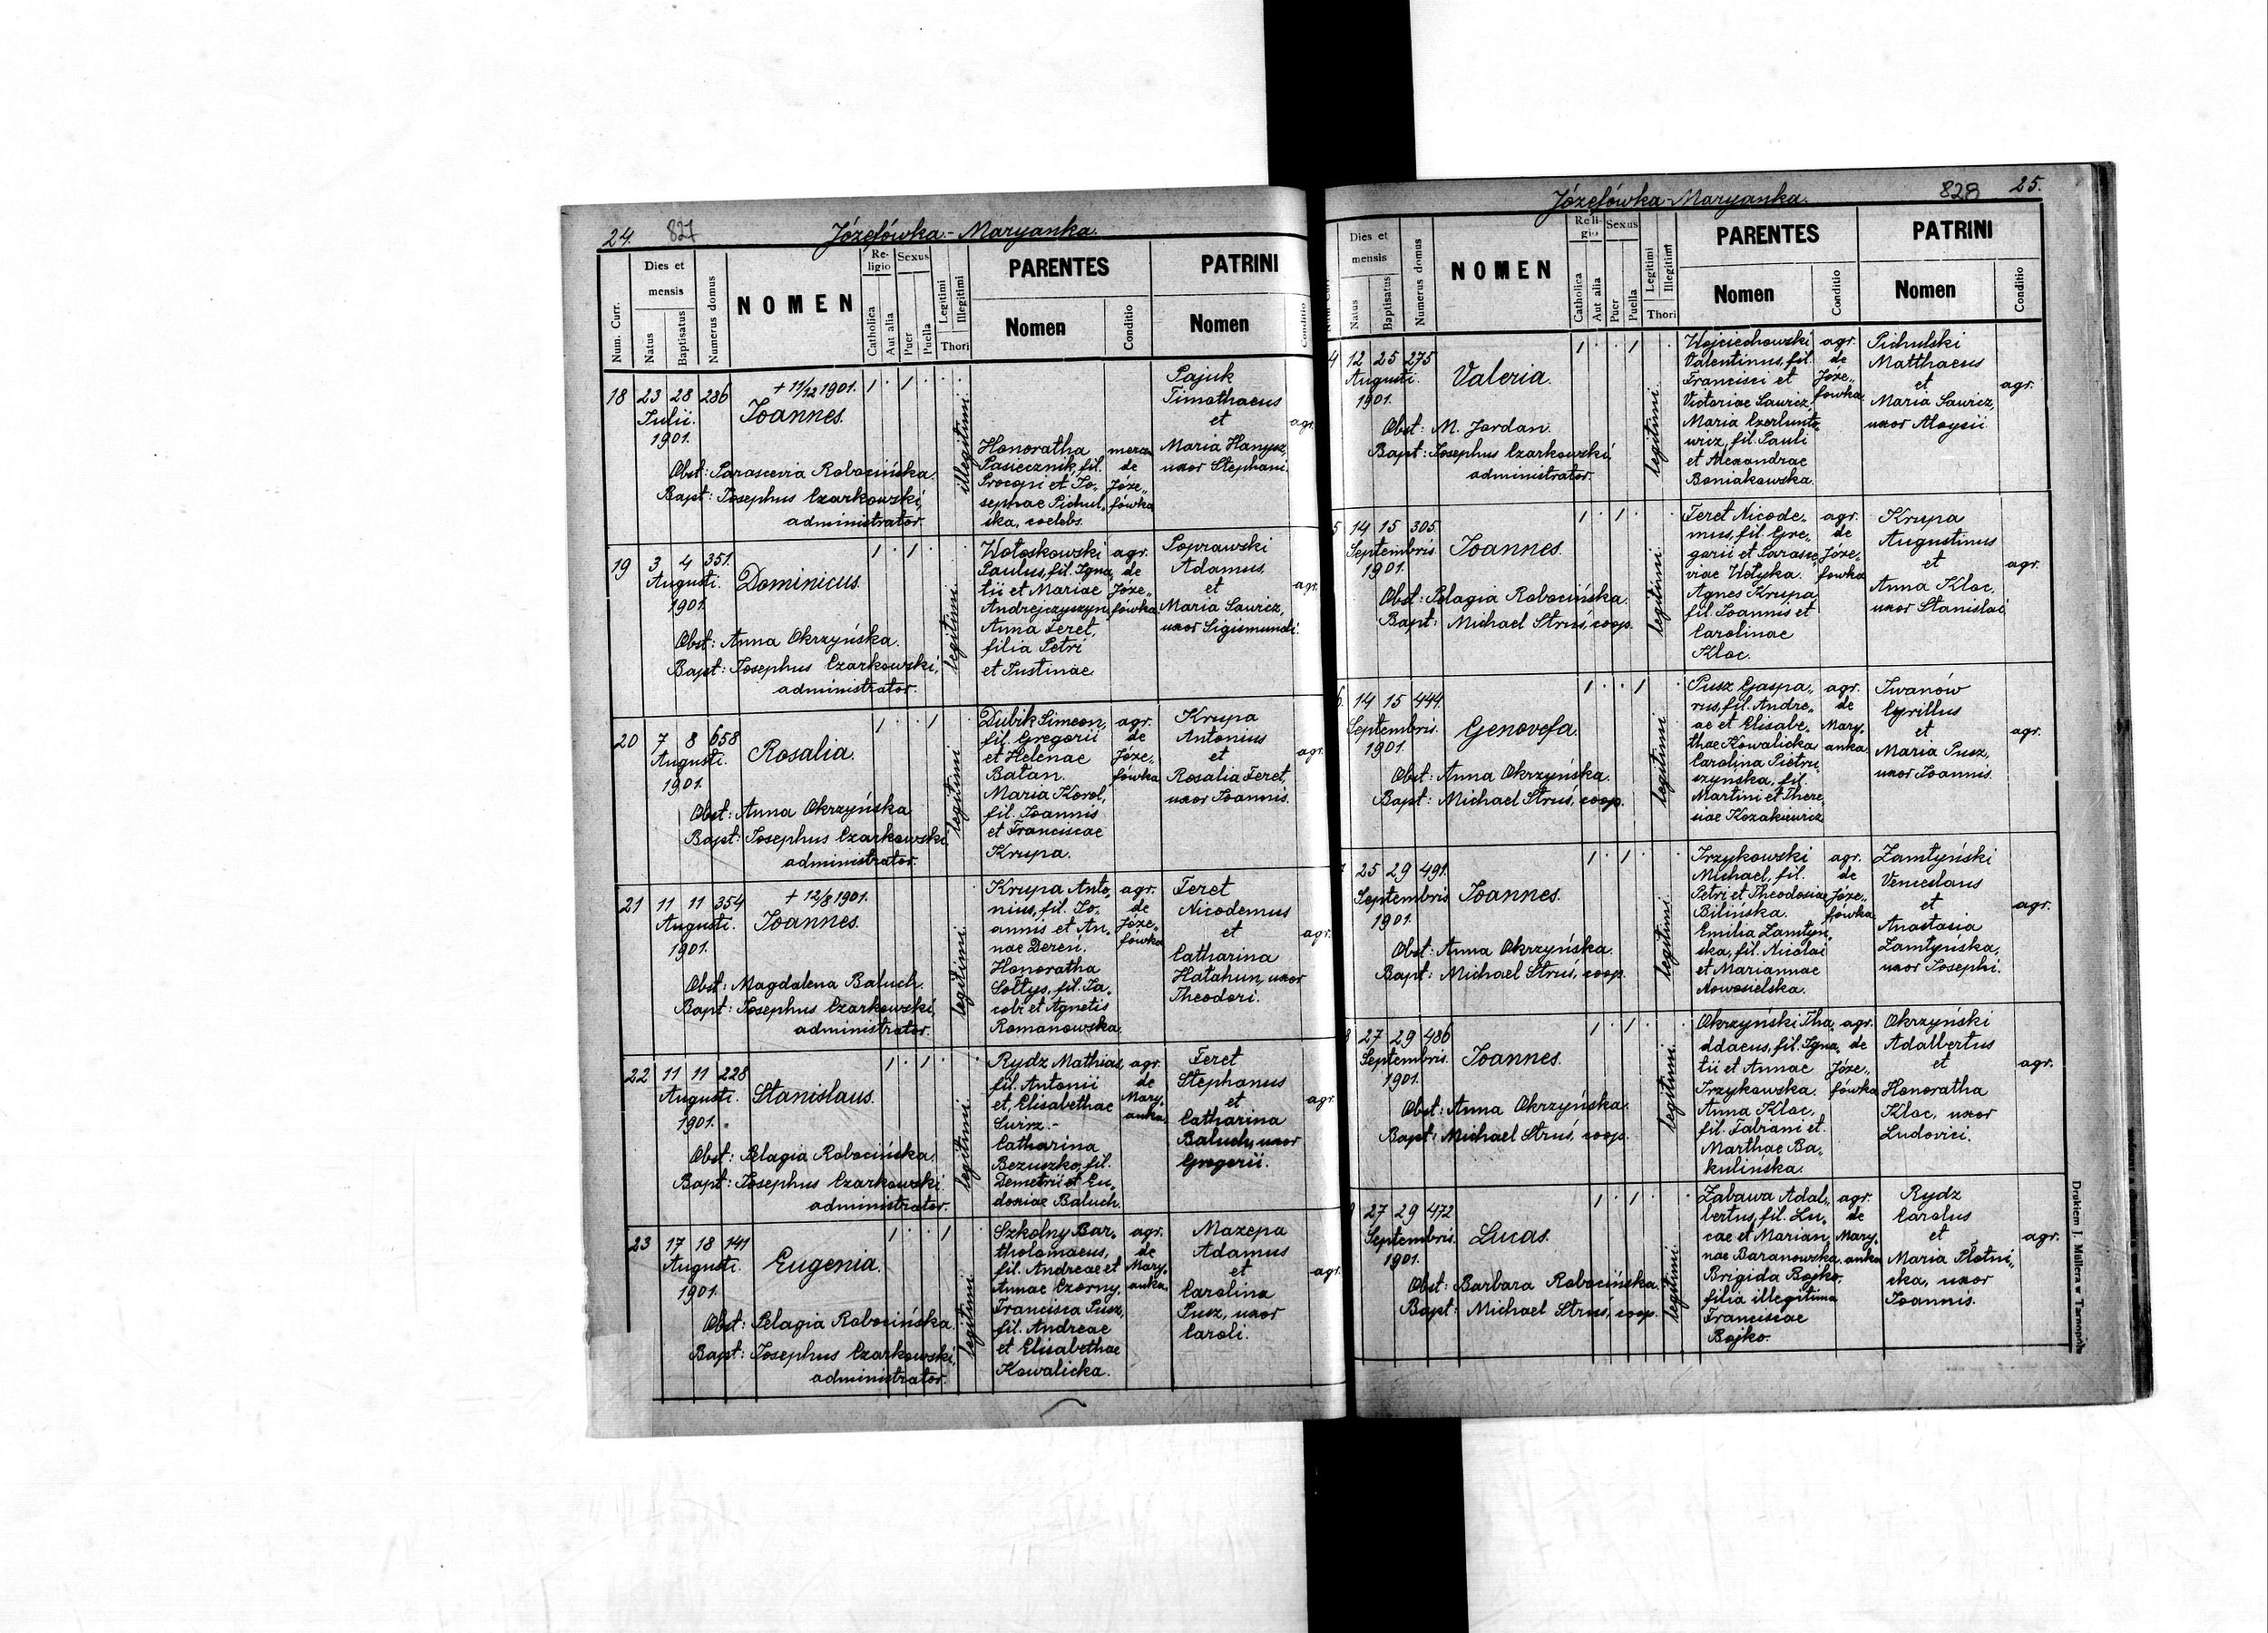 24. 827 Józefówka - Maryanka.
Num. Curr.
Dies et mensis
Natus
Baptisatus
Numerus domus
NOMEN
Religio
Catholica
Aut alia
Sexus
Puer
Puella
Legitimi
Illegitimi
Thori
PARENTES
Nomen
Conditio
PATRINI
Nomen
Conditio
18 23 28 286
Julii.
1901.
+ 11/12 1901.
Joannes.
Obst: Parascevia Robocińska.
Bapt: Josephus Czarkowski,
administrator.
illegitimi.
Honoratha
Pasiecznik, fil.
Procopi et Jo„
sephae Pichul„
ska, coelebs.
merce
de
Józe„
fówka
Pajuk
Timothaeus
et
Maria Hanysz,
uxor Stephani.
agr.
19 3 4 351.
Augusti.
1901.
Dominicus.
Obst: Anna Okrzyńska.
Bapt: Josephus Czarkowski,
administrator.
legitimi.
Wołoskowski
Paulus, fil. Igna„
tii et Mariae
Andrejczyszyn,
Anna Feret,
filia Petri
et Justinae.
agr.
de
Józe„
fówka
Poprawski
Adamus
et
Maria Sawicz,
uxor Sigismundi.
agr.
20 7 8 658
Augusti.
1901.
Rosalia.
Obst: Anna Okrzyńska
Bapt: Josephus Czarkowski,
administrator.
legitimi
Dubik Simeon,
fil. Gregorii
et Helenae
Bałan.
Maria Korol,
fil. Joannis
et Franciscae
Krupa.
agr.
de
Józe„
fówka
Krupa
Antonius
et
Rosalia Feret,
uxor Joannis.
agr.
21 11 11 354
Augusti.
1901.
+ 12/8 1901.
Joannes.
Obst: Magdalena Baluch.
Bapt: Josephus Czarkowski,
administrator.
legitimi.
Krupa Anto„
nius, fil. Jo„
annis et An„
nae Dereń.
Honoratha
Sołtys, fil. Ja„
cobi et Agnetis
Romanowska.
agr.
de
Józe„
fówka
Feret
Nicodemus
et
Catharina
Hałahun, uxor
Theodori.
agr.
22 11 11 228
Augusti.
1901.
Stanislaus.
Obst: Pelagia Robocińska.
Bapt: Josephus Czarkowski.
administrator.
legitimi.
Rydz Mathias,
fil. Antonii
et Elisabethae
Catharina
Bezuszko, fil.
Demetrii et Eu„
doxiae Baluch.
agr.
de
Mary„
anka.
Feret
Stephanus
et
Catharina
Baludy, uxor
Gregorii.
agr.
23 17 18 141
Augusti.
1901.
Eugenia.
Obst: Pelagia Robocińska.
Bapt: Josephus Czarkowski,
administrator.
legitimi.
Szkolny Bar„
tholomaeus,
fil. Andreae et
Annae Czorny.
Francisca Pusz,
fil. Andreae
et Elisabethae
Kowalicka.
agr.
de
Mary„
anka.
Mazepa
Adamus
et
Carolina
Pusz, uxor
Caroli.
agr.
Józefówka - Maryanka. 828 25.
Dies et mensis
Natus
Baptisatus
Numerus domus
NOMEN
Religio
Catholica
Aut alia
Sexus
Puer
Puella
Legitimi
Illegitimi
Thori
PARENTES
Nomen
Conditio
PATRINI
Nomen
Conditio
4 12 25 275
Augusti.
1901.
Valeria.
Obst: M. Jordan.
Bapt: Josephus Czarkowski,
administrator.
legitimi.
Wojciechowski
Valentinus, fil.
Francisci et
Victoriae Sawicz,
Maria Czerlunto„
wicz, fil. Pauli
et Alexandrae
Boniakowska.
agr.
de
Józe„
fówka
Pichulski
Matthaeus
et
Maria Sawicz,
uxor Aloysii.
agr.
5 14 15 305.
Septembris.
1901.
Joannes.
Obst: Pelagia Robocińska.
Bapt: Michael Struś, coop.
legitimi.
Feret Nicode„
mus, fil. Gre„
gorii et Parasce„
viae Wołyka.
Agnes Krupa,
fil. Joannis et
Carolinae
Kloc.
agr.
de
Józe„
fówka
Krupa
Augustinus
et
Anna Kloc,
uxor Stanislai
agr.
6. 14 15 444.
Septembris.
1901.
Genovefa.
Obst: Anna Okrzyńska.
Bapt: Michael Struś, coop.
legitimi
Pusz Gaspa„
rus, fil. Andre„
ae et Elisabe„
thae Kowalicka
Carolina Pietru„
szyńska, fil.
Martini et There„
siae Kozakiewicz
agr.
de
Mary„
anka
Iwanów
Cyrillus
et
Maria Pusz,
uxor Joannis.
agr.
25 29 491.
Septembris
1901.
Joannes.
Obst: Anna Okrzyńska.
Bapt: Michael Struś, coop.
legitimi.
Irzykowski
Michael, fil.
Petri et Theodosiae
Bilińska.
Emilia Zamłyń„
ska, fil. Nicolai
et Mariannae
Nowosielska.
agr.
de
Józe„
fówka
Zamłyński
Venceslaus
et
Anastasia
Zamłyńska,
uxor Josephi.
agr.
8 27 29 486
Septembris.
1901.
Joannes.
Obst: Anna Okrzyńska.
Bapt: Michael Struś, coop.
legitimi.
Okrzyński Tha„
ddaeus, fil. Igna„
tii et Annae
Irzykowska.
Anna Kloc,
fil. Fabiani et
Marthae Ba„
kulińska.
agr.
de
Józe„
fówka
Okrzyński
Adalbertus
et
Honoratha
Kloc, uxor
Ludovici.
agr.
27 29 472
Septembris.
1901.
Lucas.
Obst: Barbara Robocińska.
Bapt: Michael Struś, coop.
legitimi.
Zabawa Adal„
bertus, fil. Lu„
cae et Marian„
nae Baranowska.
Brigida Bojko,
filia illegitima
Franciscae
Bojko.
agr.
de
Mary„
anka
Rydz
Carolus
et
Maria Płotni„
cka, uxor
Joannis.
agr.
Drukiem J. Müllera w Tarnopolu